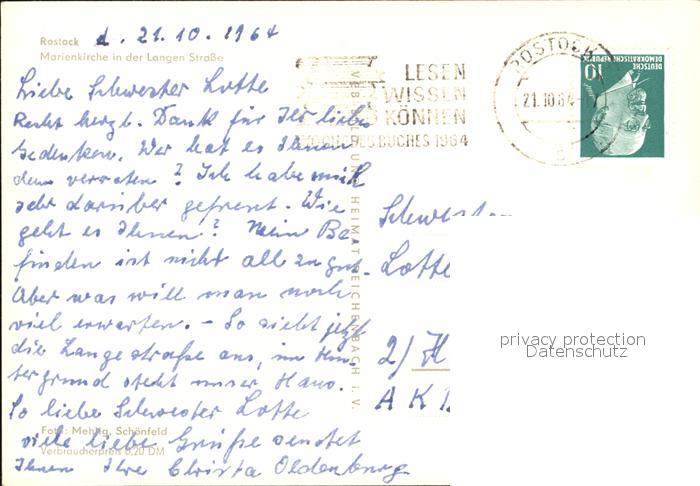 Rostock d. 21.10.1964
Marienkirche in der Langen Straße
Liebe Schwester Lotte
Recht herzl. Dank für Ihr liebes
Gedenken. Wer hat es Ihnen
denn verraten? Ich habe mich
sehr darüber gefreut. Wie
geht es Ihnen? Mein Be-
finden ist nicht all zu gut.
Aber was will man noch
viel erwarten. – So sieht jetzt
die Lange straße aus, im Hin-
tergrund steht unser Haus.
So liebe Schwester Lotte
viele liebe Grüße sendet
Ihnen Ihre Christa Oldenburg
Foto: Mehlig, Schönfeld
Verbraucherpreis 0,20 DM
VEB BILD UND HEIMAT REICHENBACH I. V.
LESEN
WISSEN
KÖNNEN
WOCHE DES BUCHES 1964
ROSTOCK
21.10.64
DEUTSCHE
DEMOKRATISCHE REPUBLIK
10
Schwest
Lotte
2) H
A K
privacy protection
Datenschutz